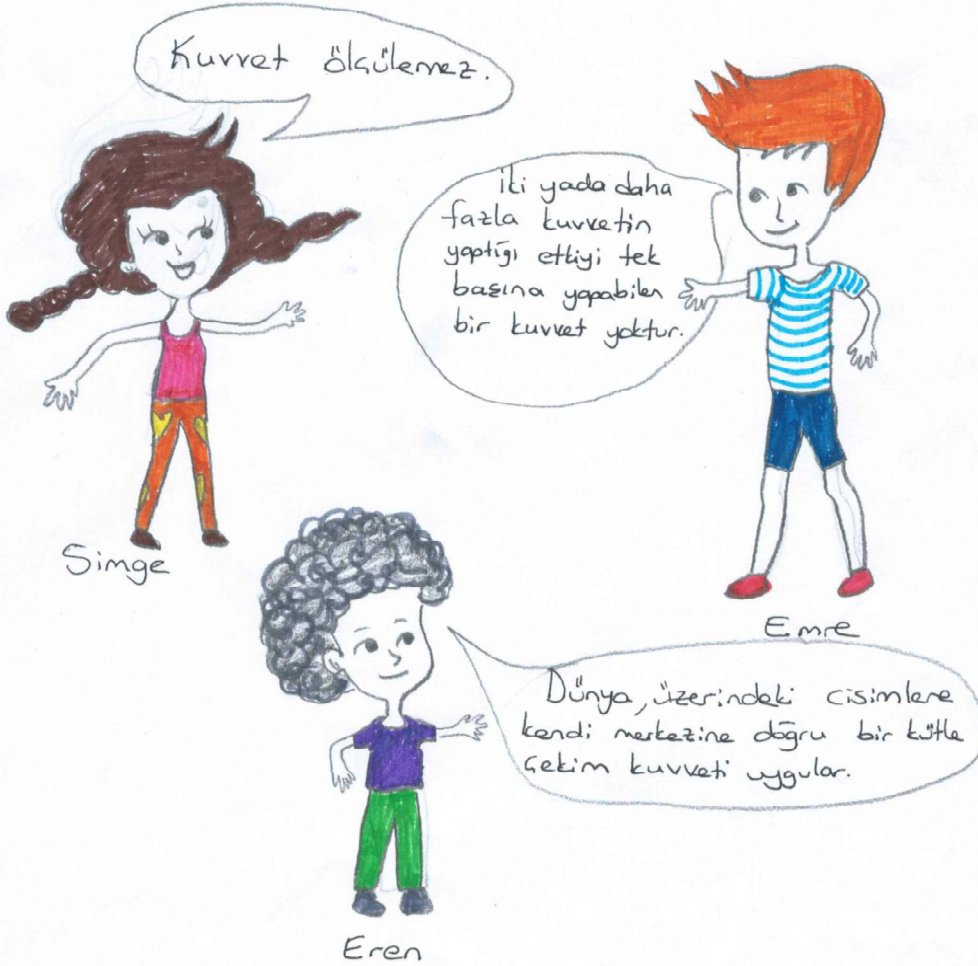 Kuvvet ölçülemez.
İki yada daha
fazla kuvvetin
yaptığı etkiyi tek
başına yapabilen
bir kuvvet yoktur.
Simge
Emre
Dünya, üzerindeki cisimlere
kendi merkezine doğru bir kütle
çekim kuvveti uygular.
Eren